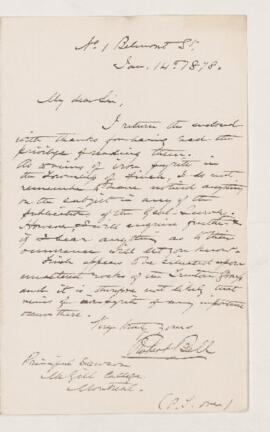 No. 1 Belmont St.
Jan. 14th 1878.
My dear Sir,
I return the enclosed
with thanks for having had the
privilege of reading them.
As to veins of iron pyrites in
the Township of Finch, I do not
remember to have noticed anything
on the subject in any of the
publications of the Geol. Survey.
However, I will enquire further &
if I hear anything as to their
occurrence will let you know.
Finch appears to be situated upon
unaltered rocks of the Trenton Group
and it is therefore not likely that
veins of iron pyrites of any importance
occur there.
Very truly yours
Robert Bell
Principal Dawson
McGill College
Montreal.
(P.S. over)